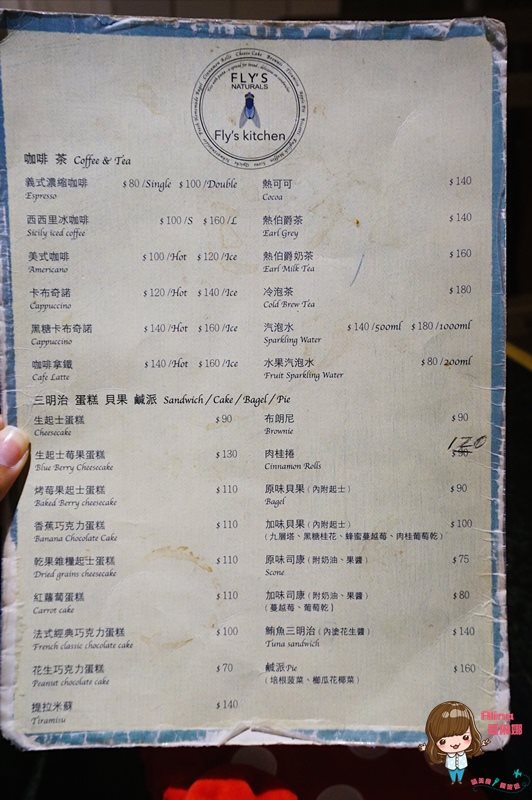 FLY'S
NATURALS
Fly's kitchen
咖啡 茶 Coffee & Tea
義式濃縮咖啡 $80/Single $100/Double
Espresso
西西里冰咖啡 $100/S $160/L
Sicily iced coffee
美式咖啡 $100/Hot $120/Ice
Americano
卡布奇諾 $120/Hot $140/Ice
Cappuccino
黑糖卡布奇諾 $140/Hot $160/Ice
Cappuccino
咖啡拿鐵 $140/Hot $160/Ice
Cafe Latte
熱可可 $140
Cocoa
熱伯爵茶 $140
Earl Grey
熱伯爵奶茶 $160
Earl Milk Tea
冷泡茶 $180
Cold Brew Tea
汽泡水 $140/500ml $180/1000ml
Sparkling Water
水果汽泡水 $80/200ml
Fruit Sparkling Water
三明治 蛋糕 貝果 鹹派 Sandwich/Cake/Bagel/Pie
生起士蛋糕 $90
Cheesecake
生起士莓果蛋糕 $130
Blue Berry Cheesecake
烤莓果起士蛋糕 $110
Baked Berry cheesecake
香蕉巧克力蛋糕 $110
Banana Chocolate Cake
乾果雜糧起士蛋糕 $110
Dried grains cheesecake
紅蘿蔔蛋糕 $110
Carrot cake
法式經典巧克力蛋糕 $100
French classic chocolate cake
花生巧克力蛋糕 $70
Peanut chocolate cake
提拉米蘇 $140
Tiramisu
布朗尼 $90
Brownie
120
肉桂捲 $90
Cinnamon Rolls
原味貝果(內附起士) $90
Bagel
加味貝果(內附起士) $100
(九層塔、黑糖桂花、蜂蜜蔓越莓、肉桂葡萄乾)
原味司康(附奶油、果醬) $75
Scone
加味司康(附奶油、果醬) $80
(蔓越莓、葡萄乾)
鮪魚三明治(內塗花生醬) $140
Tuna sandwich
鹹派Pie $160
(培根菠菜、櫛瓜花椰菜)